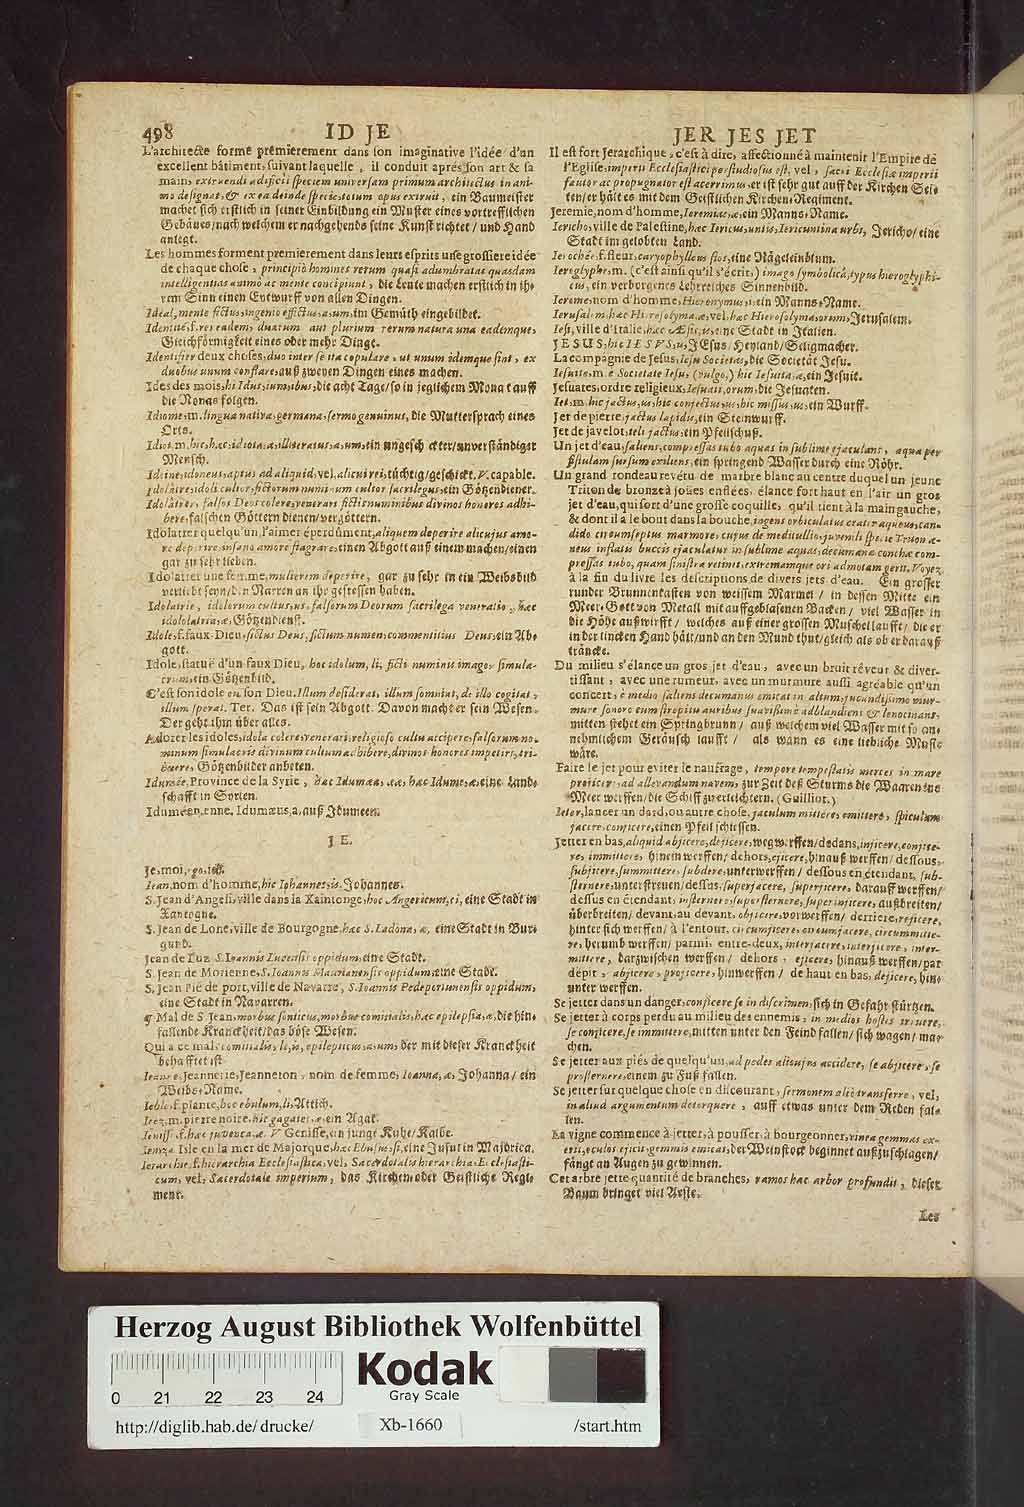 498 ID JE
L'architecte forme premierement dans son imaginative l'idée d'an
excellent bâtiment, suivant laquelle, il conduit aprés son art & sa
main, extruendi ædificii speciem universam primum architectus in ani-
mo designat, & ex ea deinde specie, totum opus exstruit, ein Baumeister
machet sich erstlich in seiner Einbildung ein Muster eines vortrefflichen
Gebäues / nach welchem er nachgehends seine Kunst richtet / und Hand
anlegt.
Les hommes forment premierement dans leurs esprits une grossiere idée
de chaque chose, principiò homines rerum quasi adumbratas quasdam
intelligentias animo ac mente concipiunt, die Leute machen erstlich in ih-
rem Sinn einen Entwurff von allen Dingen.
Ideal, mente fictus, ingenio effictus, a, um, im Gemüth eingebildet.
Identité, f. res eadem, duarum aut plurium rerum natura una eademque,
Gleichförmigkeit eines oder mehr Dinge.
Identifier deux choses, duo inter se ita copulare, ut unum idemque sint, ex
duobus unum conflare, auß zweyen Dingen eines machen.
Ides des mois, hi Idus, uum, ibus, die acht Tage / so in jeglichem Monat auff
die Nonas folgen.
Idiome, m. lingua nativa, germana, sermo genuinus, die Muttersprach eines
Orts.
Idiot, m. hic, hæc, idiota, æ, illiteratus, a, um, ein ungeschickter / unverständiger
Mensch.
Idoine, idoneus, aptus ad aliquid, vel, alicui rei, tüchtig / geschickt. V. capable.
Idolâtre, idoli cultor, fictorum numinum cultor sacrilegus, ein Götzendiener.
Idolâtrer, falsos Deos colere, venerari fictis numinibus divinos honores adhi-
bere, falschen Göttern dienen / vergöttern.
Idolatrer quelqu'un, l'aimer éperdûment, aliquem deperire alicujus amo-
re deperire, insano amore flagrare, einen Abgott auß einem machen / einen
gar zu sehr lieben.
Idolatrer une femme, mulierem deperire, gar zu sehr in ein Weibsbild
verliebt seyn / den Narren an ihr gefressen haben.
Idolatrie, idolorum cultus, us, falsorum Deorum sacrilega veneratio, hæc
idololatria, æ, Götzendienst.
Idole, f. faux-Dieu, fictus Deus, fictum numen, commentitius Deus, ein Ab-
gott.
Idole, statuë d'un faux Dieu, hoc idolum, li, ficti numinis imago, simula-
crum, ein Götzenbild.
C'est son idole ou son Dieu. Illum desiderat, illum somniat, de illo cogitat,
illum sperat. Ter. Das ist sein Abgott. Davon macht er sein Wesen.
Der geht ihm über alles.
Adorer les idoles, idola colere, venerari, religioso cultu accipere, falsorum no-
minum simulacris divinum cultum adhibere, divinos honores impetire, tri-
buere, Götzenbilder anbeten.
Idumée, Province de la Syrie, hæc Idumæa, ææ, hæc Idume, æ, eine Land-
schafft in Syrien.
Iduméen, enne, Idumæus, a, auß Idumeen.
J E.
Je, moi, ego, ich.
Jean, nom d'homme, hic Iohannes, is, Johannes.
S. Jean d'Angeli, ville dans la Xaintonge, hoc Angericum, ci, eine Stadt in
Xantogne.
S. Jean de Lone, ville de Bourgogne, hæc S. Ladona, æ, eine Stadt in Bur-
gund.
Jean de Luz S. Ioannis Lucensis oppidum, eine Stadt.
S. Jean de Morienne, S. Ioannis Maurianensis oppidum, eine Stadt.
S. Jean Pié de port, ville de Navarre, S. Ioannis Pedeportuensis oppidum,
eine Stadt in Navarren.
¶ Mal de S. Jean, morbus sonticus, morbus comitialis, hæc epilepsia, æ, die hin-
fallende Kranckheit / das böse Wesen.
Qui a ce mal, comitialis, le, is, epilepticus, a, um, der mit dieser Kranckheit
behafftet ist.
Jeanne, Jeannerie, Jeanneton, nom de femme, Ioanna, æ, Johanna / ein
Weibs-Name.
Jeble, f. plante, hoc ebulum, li, Attich.
Jeez, m. pierre noire, hic gagates, æ, ein Agat.
Jenisse, f. hæc juvenca, æ. V Genisse, ein junge Kuhe / Kalbe.
Jemza Isle en la mer de Majorque, hæc Ebusus, si, eine Insul in Majorica.
Jerarchie, f. hierarchia Ecclesiastica, vel, Sacerdotalis hierarchia, Ecclesiasti-
cum, vel, Sacerdotale imperium, das Kirchen- oder Geistliche Regi-
ment.
JER JES JET
Il est fort Jerarchique, c'est à dire, affectionné à maintenir l'Empire de
l'Eglise, imperii Ecclesiastici perstudiosus est, vel, sacri Ecclesiæ imperii
fautor ac propugnator est acerrimus, er ist sehr gut auff der Kirchen Sei-
ten / er hält es mit dem Geistlichen Kirchen-Regiment.
Jeremie, nom d'homme, Ieremias, æ, ein Manns-Name.
Jericho, ville de Palestine, hæc Iericus, untis, Iericuntina urbs, Jericho / eine
Stadt im gelobten Land.
Jerochée, f. fleur, caryophylleus flos, eine Nägeleinblum.
Jeroglyphes, m. (c'est ainsi qu'il s'écrit,) imago symbolica, typus hieroglyphi-
cus, ein verborgenes Lehrreiches Sinnenbild.
Jerome, nom d'homme, Hieronymus, i, ein Manns-Name.
Jerusalem, hæc Hierosolyma, æ, vel, hæc Hierosolyma, orum, Jerusalem.
Jesi, ville d'Italie, hæc Æsis, is, eine Stadt in Italien.
JESUS, hic IESVS, u, JEsus / Heyland / Seligmacher.
La compagnie de Jesus, Iesu Societas, die Societät Jesu.
Jesuite, m. è Societate Iesu, (vulgo,) hic Iesuita, æ, ein Jesuit.
Jesuates, ordre religieux, Iesuati, orum, die Jesuaten.
Jet, m. hic jactus, us, hic conjectus, us, hic missus, us, ein Wurff.
Jet de pierre, jactus lapidis, ein Steinwurff.
Jet de javelot, teli jactus, ein Pfeilschuß.
Un jet d'eau, saliens, compressas tubo aquas in sublime ejaculans, aqua per
fistulam sursum exiliens, ein springend Wasser durch eine Röhr.
Un grand rondeau revétu de marbre blanc au centre duquel un jeune
Triton de bronze à joües enflées, élance fort haut en l'air un gros
jet d'eau, qui sort d'une grosse coquille, qu'il tient à la main gauche,
& dont il a le bout dans la bouche, ingens orbiculatus crater aqueus, can-
dido circumseptus marmore, cujus de meditullio, juvenili specie Triton æ-
neus inflatis buccis ejaculatur in sublime aquas, decumanæ conchæ com-
pressas tubo, quam sinistra retinet, extremamque ori admotam gerit. Voyez
à la fin du livre les descriptions de divers jets d'eau. Ein grosser
runder Brunnenkasten von weissem Marmel / in dessen Mitte ein
Meer-Gott von Metall mit auffgeblasenen Backen / viel Wasser in
die Höhe außwirfft / welches auß einer grossen Muschel laufft / die er
in der lincken Hand hält / und an den Mund thut / gleich als ob er darauß
träncke.
Du milieu s'élance un gros jet d'eau, avec un bruit rêveur & diver-
tissant, avec une rumeur, avec un murmure aussi agreable qu'un
concert, è medio saliens decumanus emicat in altum, jucundissimo mur-
mure sonoro cum strepitu auribus suavissimè adblandiens & lenocinans,
mitten stehet ein Springbrunn / auß welchem viel Wasser mit so an-
nehmlichem Geräusch laufft / als wann es eine liebliche Music
wäre.
Faire le jet pour eviter le naufrage, tempore tempestatis merces in mare
projicere, ad allevandam navem, zur Zeit deß Sturms die Waaren ins
Meer werffen / die Schiff zu erleichtern. (Guilliot.)
Jeter, lancer un dard, ou autre chose, jaculum mittere, emittere, spiculum
jacere, conjicere, einen Pfeil schiessen.
Jetter en bas, aliquid abjicere, dejicere, wegwerffen / dedans, injicere, conjice-
re, immittere, hinein werffen / dehors, ejicere, hinauß werffen / dessous,
subjicere, summittere, subdere, unterwerffen / dessous en étendant, sub-
sternere, unterstreuen / dessus, superjacere, superjicere, darauff werffen /
dessus en étendant, insternere, supersternere, superinjicere, außbreiten /
überbreiten / devant, au devant, objicere, vorwerffen / derriere, rejicere,
hinter sich werffen / à l'entour, circumjicere, circumjacere, circummitte-
re, herumb werffen / parmi, entre-deux, interjacere, interjicere, inter-
mittere, darzwischen werffen / dehors, ejicere, hinauß werffen / par
dépit, abjicere, projicere, hinwerffen / de haut en bas, dejicere, hin-
unter werffen.
Se jetter dans un danger, conjicere se in discrimen, sich in Gefahr stürtzen.
Se jetter à corps perdu au milieu des ennemis, in medios hostes irruere,
se conjicere, se immittere, mitten unter den Feind fallen / sich wagen / ma-
chen.
Se jetter aux piés de quelqu'un, ad pedes alicujus accidere, se abjicere, se
prosternere, einem zu Fuß fallen.
Se jetter sur quelque chose en discourant, sermonem aliò transferre, vel,
in aliud argumentum detorquere, auff etwas unter dem Reden fal-
len.
La vigne commence à jetter, à pousser, à bourgeonner, vinea gemmas ex-
erit, oculos ejicit, gemmis emicat, der Weinstock beginnet außzuschlagen /
fängt an Augen zu gewinnen.
Cet arbre jette quantité de branches, ramos hæc arbor profundit, dieser
Baum bringet viel Aeste.
Les
Herzog August Bibliothek Wolfenbüttel
Kodak
Gray Scale
0 21 22 23 24
http://diglib.hab.de/drucke/ Xb-1660 /start.htm